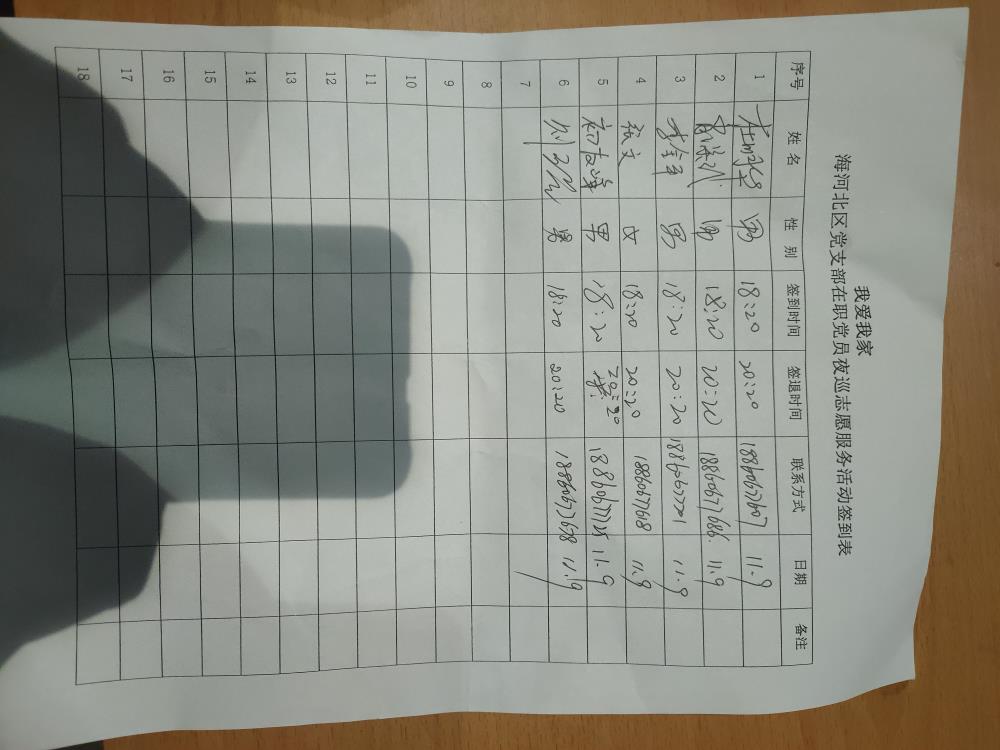 我爱我家
海河北区党支部在职党员夜巡志愿服务活动签到表
序号 姓名 性别 签到时间 签退时间 联系方式 日期 备注
1 男 18:20 20:20 18860677607 11.9
2 男 18:20 20:20 18860677686 11.9
3 男 18:20 20:20 18860677721 11.9
4 张文 女 18:20 20:20 18860677618 11.9
5 男 18:20 20:20 11.9
6 男 18:20 20:20 18860677658 11.9
7
8
9
10
11
12
13
14
15
16
17
18